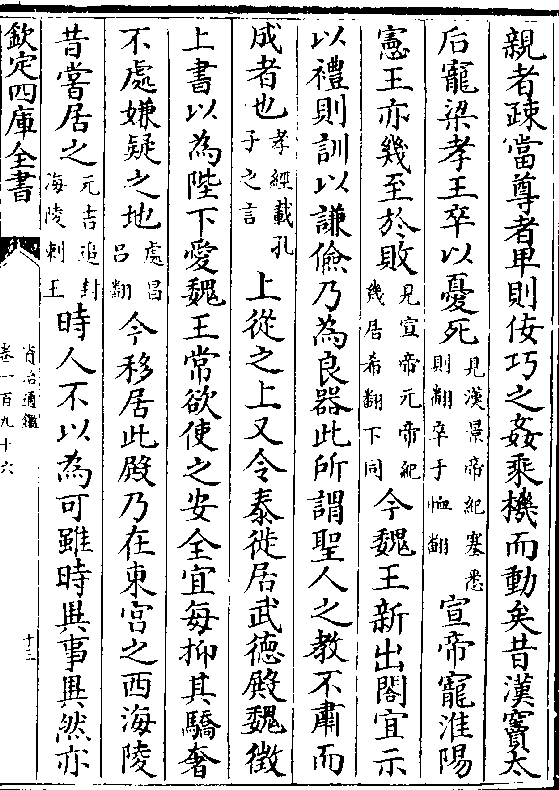 親者疎當尊者卑則佞巧之姦乘機而動矣昔漢竇太
后寵梁孝王卒以憂死見漢景帝紀塞悉則翻卒于恤翻宣帝寵淮陽
憲王亦幾至於敗見宣帝元帝紀幾居希翻下同今魏王新出閤宜示
以禮則訓以謙儉乃為良器此所謂聖人之教不肅而
成者也孝經載孔子之言上從之上又令泰徙居武德殿魏徵
上書以為陛下愛魏王常欲使之安全宜每抑其驕奢
不處嫌疑之地處昌呂翻今移居此殿乃在東宮之西海陵
昔嘗居之元吉追封海陵剌王時人不以為可雖時異事異然亦
欽定四庫全書
資治通鑑
卷一百九十六
十三